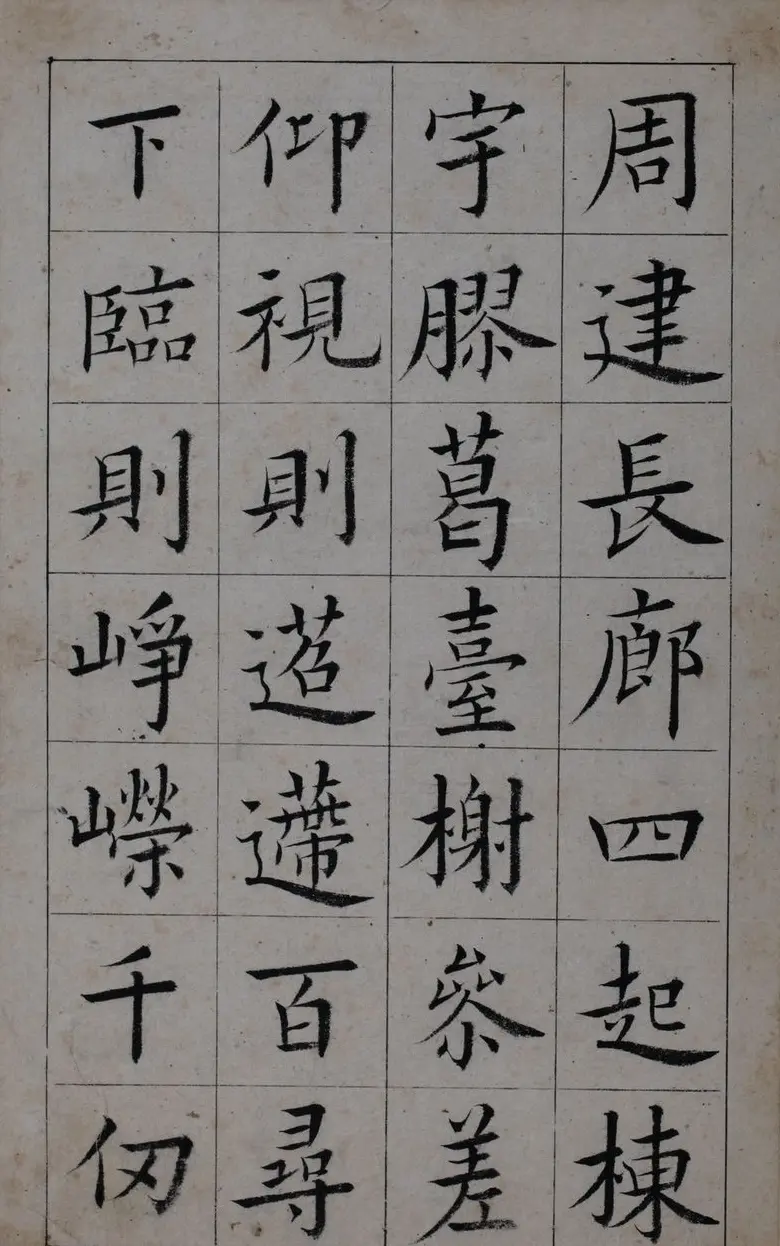 周建長廊四起棟
宇膠葛臺榭參差
仰視則迢遰百尋
下臨則崢嶸千仞